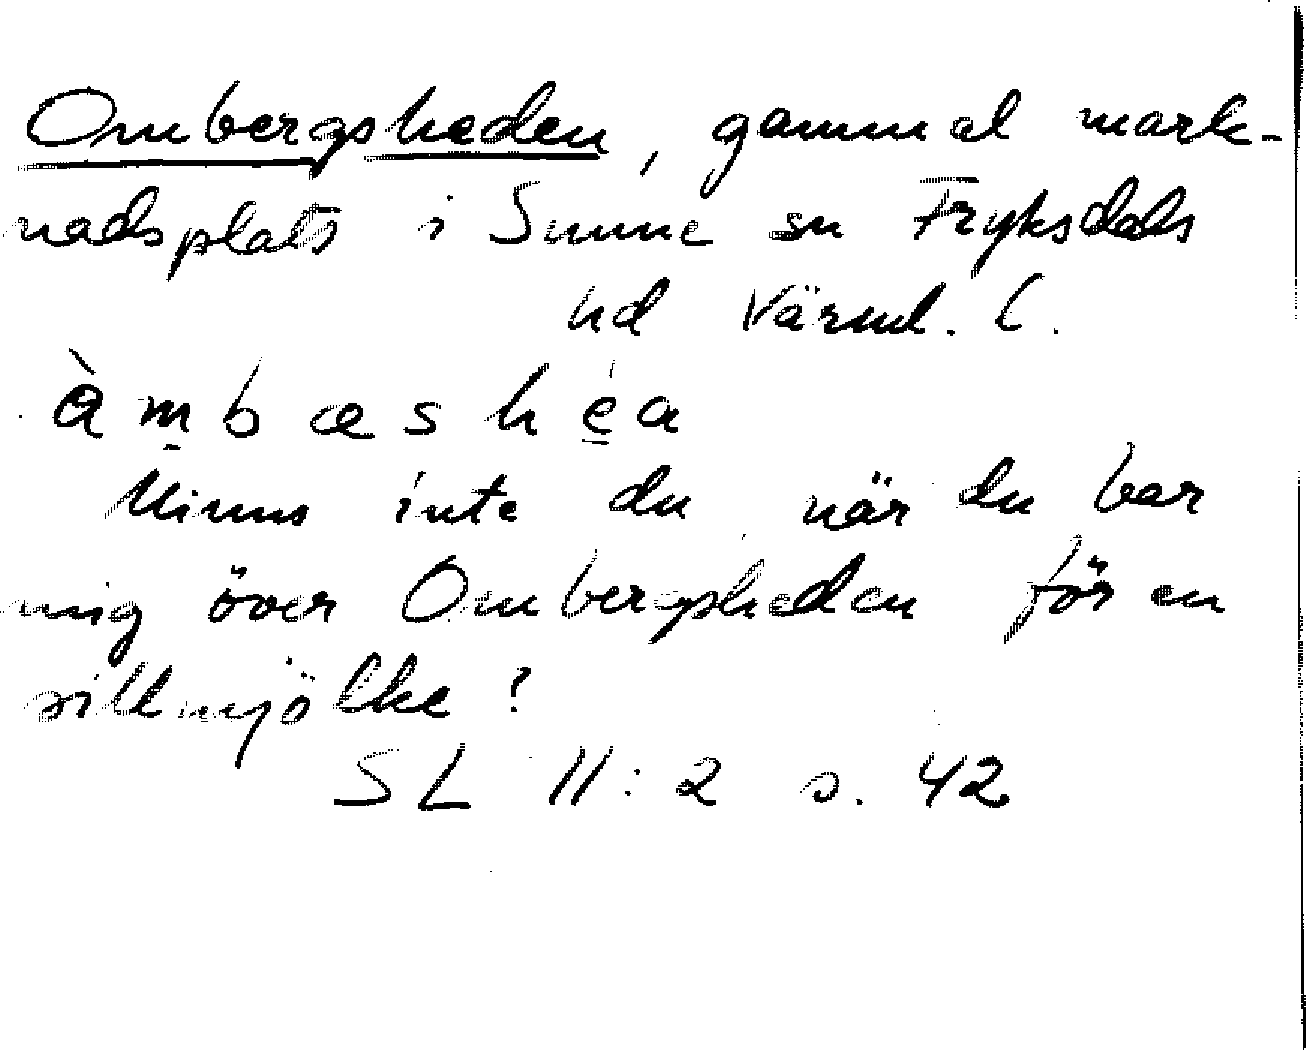 Ombergsheden, gammal mark-
nadsplats i Sunne sn Fryksdals
hd Värml. l.
àmbæshéa
Minns inte du när du bar
mig över Ombergsheden för en
sillmjölke?
SL II:2 s. 42